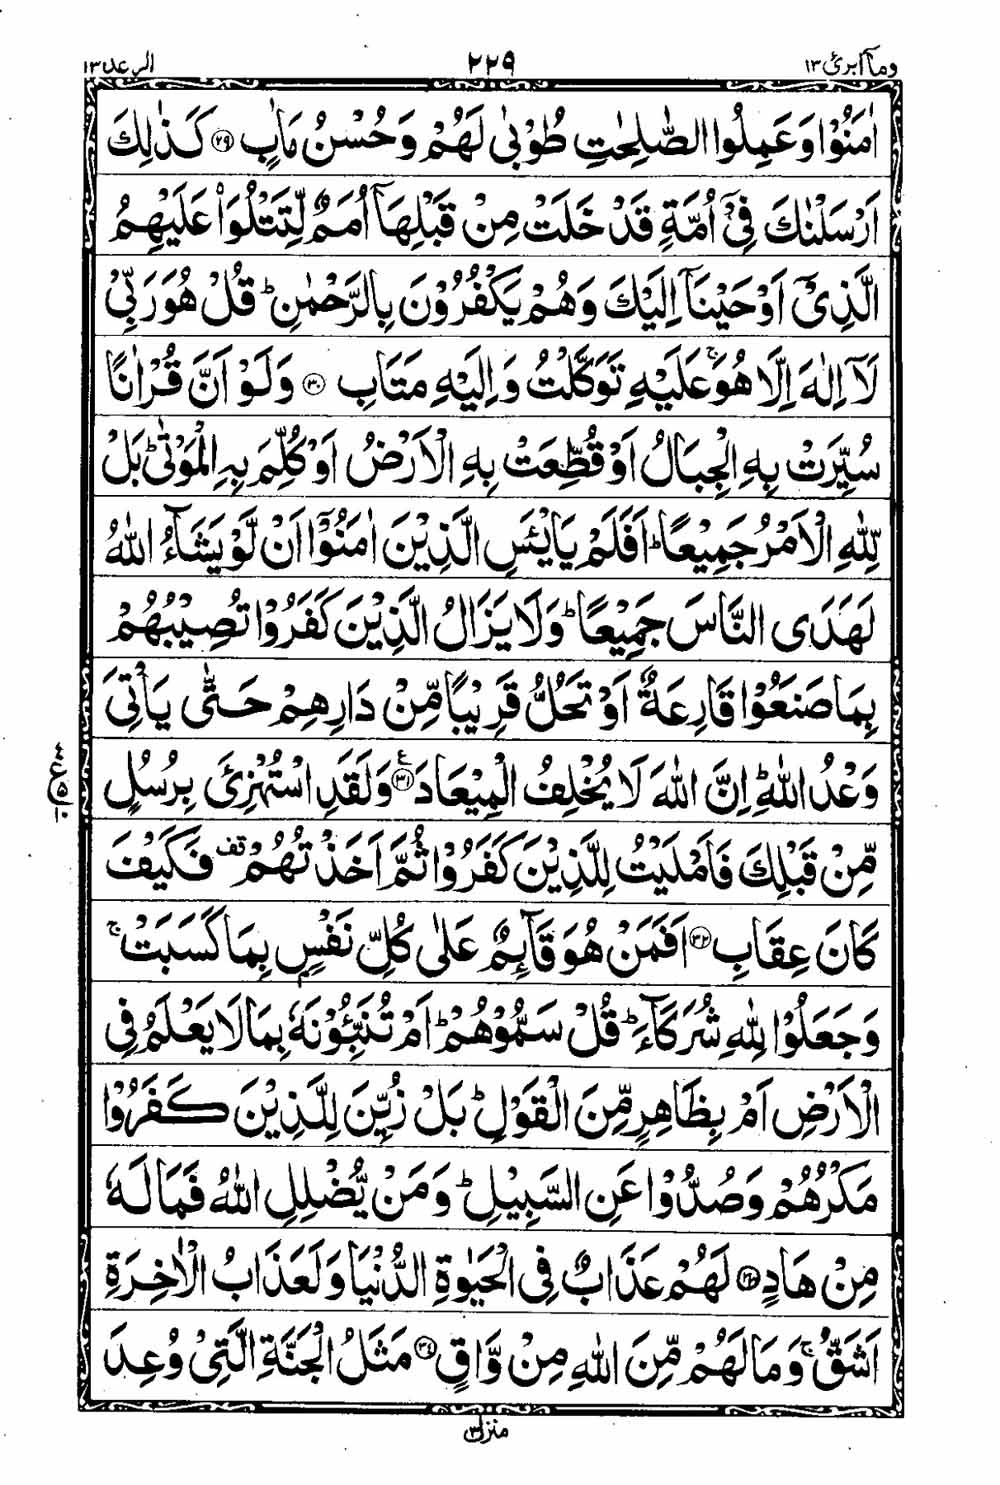 وماۤ ابرئ ١٣ ٢٢٩ الرعد ١٣
اٰمَنُوْا وَعَمِلُوا الصّٰلِحٰتِ طُوْبٰى لَهُمْ وَحُسْنُ مَاٰبٍ ﴿٢٩﴾ كَذٰلِكَ
اَرْسَلْنٰكَ فِيْۤ اُمَّةٍ قَدْ خَلَتْ مِنْ قَبْلِهَاۤ اُمَمٌ لِّتَتْلُوَا۟ عَلَيْهِمُ
الَّذِيْۤ اَوْحَيْنَاۤ اِلَيْكَ وَهُمْ يَكْفُرُوْنَ بِالرَّحْمٰنِ ؕ قُلْ هُوَ رَبِّيْ
لَاۤ اِلٰهَ اِلَّا هُوَ ۚ عَلَيْهِ تَوَكَّلْتُ وَاِلَيْهِ مَتَابِ ﴿٣٠﴾ وَلَوْ اَنَّ قُرْاٰنًا
سُيِّرَتْ بِهِ الْجِبَالُ اَوْ قُطِّعَتْ بِهِ الْاَرْضُ اَوْ كُلِّمَ بِهِ الْمَوْتٰى ؕ بَلْ
لِّلّٰهِ الْاَمْرُ جَمِيْعًا ؕ اَفَلَمْ يَايْـَٔسِ الَّذِيْنَ اٰمَنُوْۤا اَنْ لَّوْ يَشَآءُ اللّٰهُ
لَهَدَى النَّاسَ جَمِيْعًا ؕ وَلَا يَزَالُ الَّذِيْنَ كَفَرُوْا تُصِيْبُهُمْ
بِمَا صَنَعُوْا قَارِعَةٌ اَوْ تَحُلُّ قَرِيْبًا مِّنْ دَارِهِمْ حَتّٰى يَاْتِيَ
وَعْدُ اللّٰهِ ؕ اِنَّ اللّٰهَ لَا يُخْلِفُ الْمِيْعَادَ ﴿٣١﴾ ع وَلَقَدِ اسْتُهْزِئَ بِرُسُلٍ
مِّنْ قَبْلِكَ فَاَمْلَيْتُ لِلَّذِيْنَ كَفَرُوْا ثُمَّ اَخَذْتُهُمْ قف فَكَيْفَ
كَانَ عِقَابِ ﴿٣٢﴾ اَفَمَنْ هُوَ قَآئِمٌ عَلٰى كُلِّ نَفْسٍۭ بِمَا كَسَبَتْ ۚ
وَجَعَلُوْا لِلّٰهِ شُرَكَآءَ ؕ قُلْ سَمُّوْهُمْ ؕ اَمْ تُنَبِّـُٔوْنَهٗ بِمَا لَا يَعْلَمُ فِي
الْاَرْضِ اَمْ بِظَاهِرٍ مِّنَ الْقَوْلِ ؕ بَلْ زُيِّنَ لِلَّذِيْنَ كَفَرُوْا
مَكْرُهُمْ وَصُدُّوْا عَنِ السَّبِيْلِ ؕ وَمَنْ يُّضْلِلِ اللّٰهُ فَمَا لَهٗ
مِنْ هَادٍ ﴿٣٣﴾ لَهُمْ عَذَابٌ فِي الْحَيٰوةِ الدُّنْيَا وَلَعَذَابُ الْاٰخِرَةِ
اَشَقُّ ۚ وَمَا لَهُمْ مِّنَ اللّٰهِ مِنْ وَّاقٍ ﴿٣٤﴾ مَثَلُ الْجَنَّةِ الَّتِيْ وُعِدَ
منزل ٣